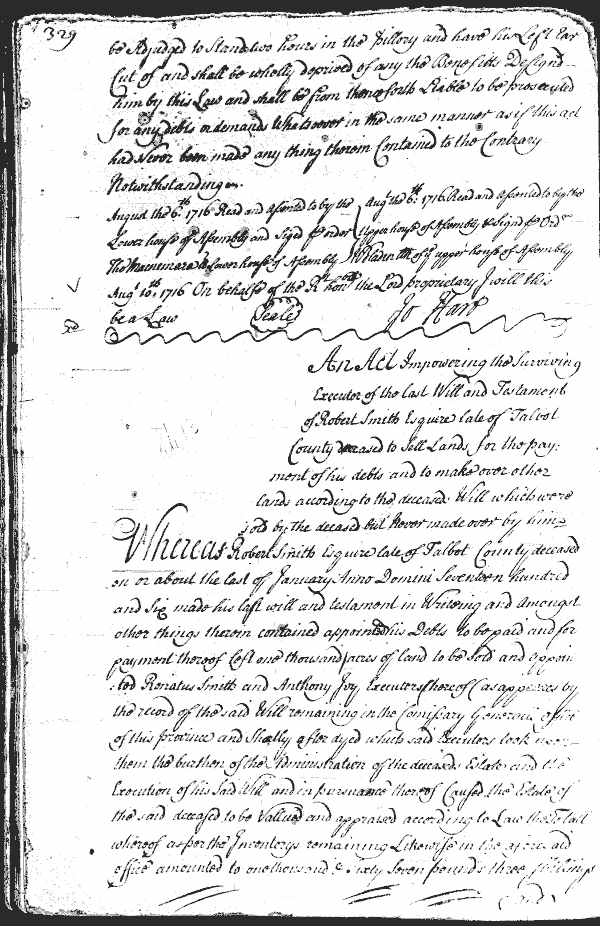 329
be Adjudged to Stand two hours in the Pillory and have his Left Ear
Cut of and shall be wholly deprived of any the Benefitts Designd
him by this Law and shall be from thenceforth Liable to be prosecuted
for any debts or demands Whatsoever in the same manner as if this act
had Never been made any thing therein Contained to the Contrary
Notwithstanding.
August the 6th. 1716 Read and Assented to by the
Lower house of Assembly and Signd p order
Tho Macnemara Cl Lower house of Assembly
Augt the 6th. 1716. Read and Assented to by the
upper house of Assembly & Signd p Ordr
W Bladen Cl of ye upper house of Assembly
Augt 10th. 1716 On behalfe of the Rt honble the Lord proprietary I will this
be a Law Seale Jo Hart
An Act Impowering the Surviving
Executor of the last Will and Testament
of Robert Smith Esquire late of Talbot
County deceased to Sell Lands for the pay:
ment of his debts and to make over other
lands according to the deceaseds Will which were
sold by the deceased but Never made over by him
Whereas Robert Smith Esquire late of Talbot County deceased
on or about the last of January Anno Domini Seventeen hundred
and Six made his last will and testament in Writeing and Amongst
other things therein contained appointed his Debts to be paid and for
payment thereof Left one thousand acres of land to be Sold and appoin
:ted Renatus Smith and Anthony Ivy Executors thereof (as appeares by
the record of the said Will remaining in the Comisary Generals office
of this province and Shortly after dyed which said Executors took upon
them the burthen of the Administration of the deceaseds Estate and the
Execution of his Said Will and in pursuance thereof Caused the Estate of
the said deceased to be Vallued and appraised according to Law the Totall
whereof as per the Inventorys remaining Likewise in the aforesaid
office amounted to one thousand & Sixty Seven pounds three shillings
and